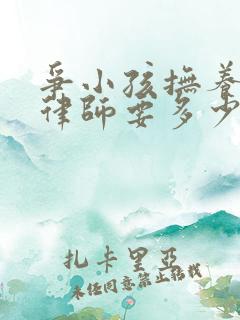 爭小孩撫養
律師要多少
扎卡里亞
未經同意禁止轉載